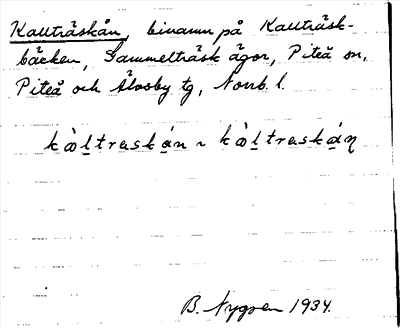 Kallträskån, binamn på Kallträsk-
bäcken, Gammelträsk ägor, Piteå sn,
Piteå och Älvsby tg, Norrb. l.
kàl̲traskán ~ kàl̲traskáṇ
B. Nygren 1934.